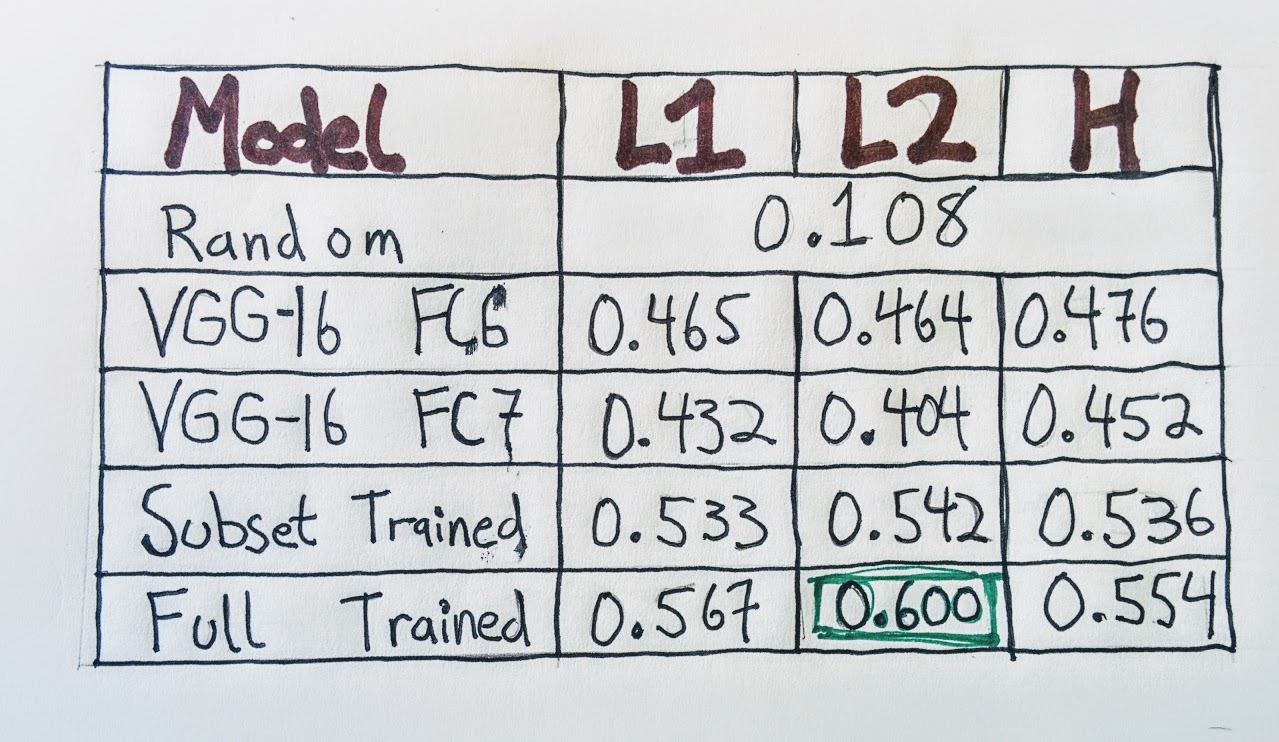 Model L1 L2 H
Random 0.108
VGG-16 FC6 0.465 0.464 0.476
VGG-16 FC7 0.432 0.404 0.452
Subset Trained 0.533 0.542 0.536
Full Trained 0.567 0.600 0.554